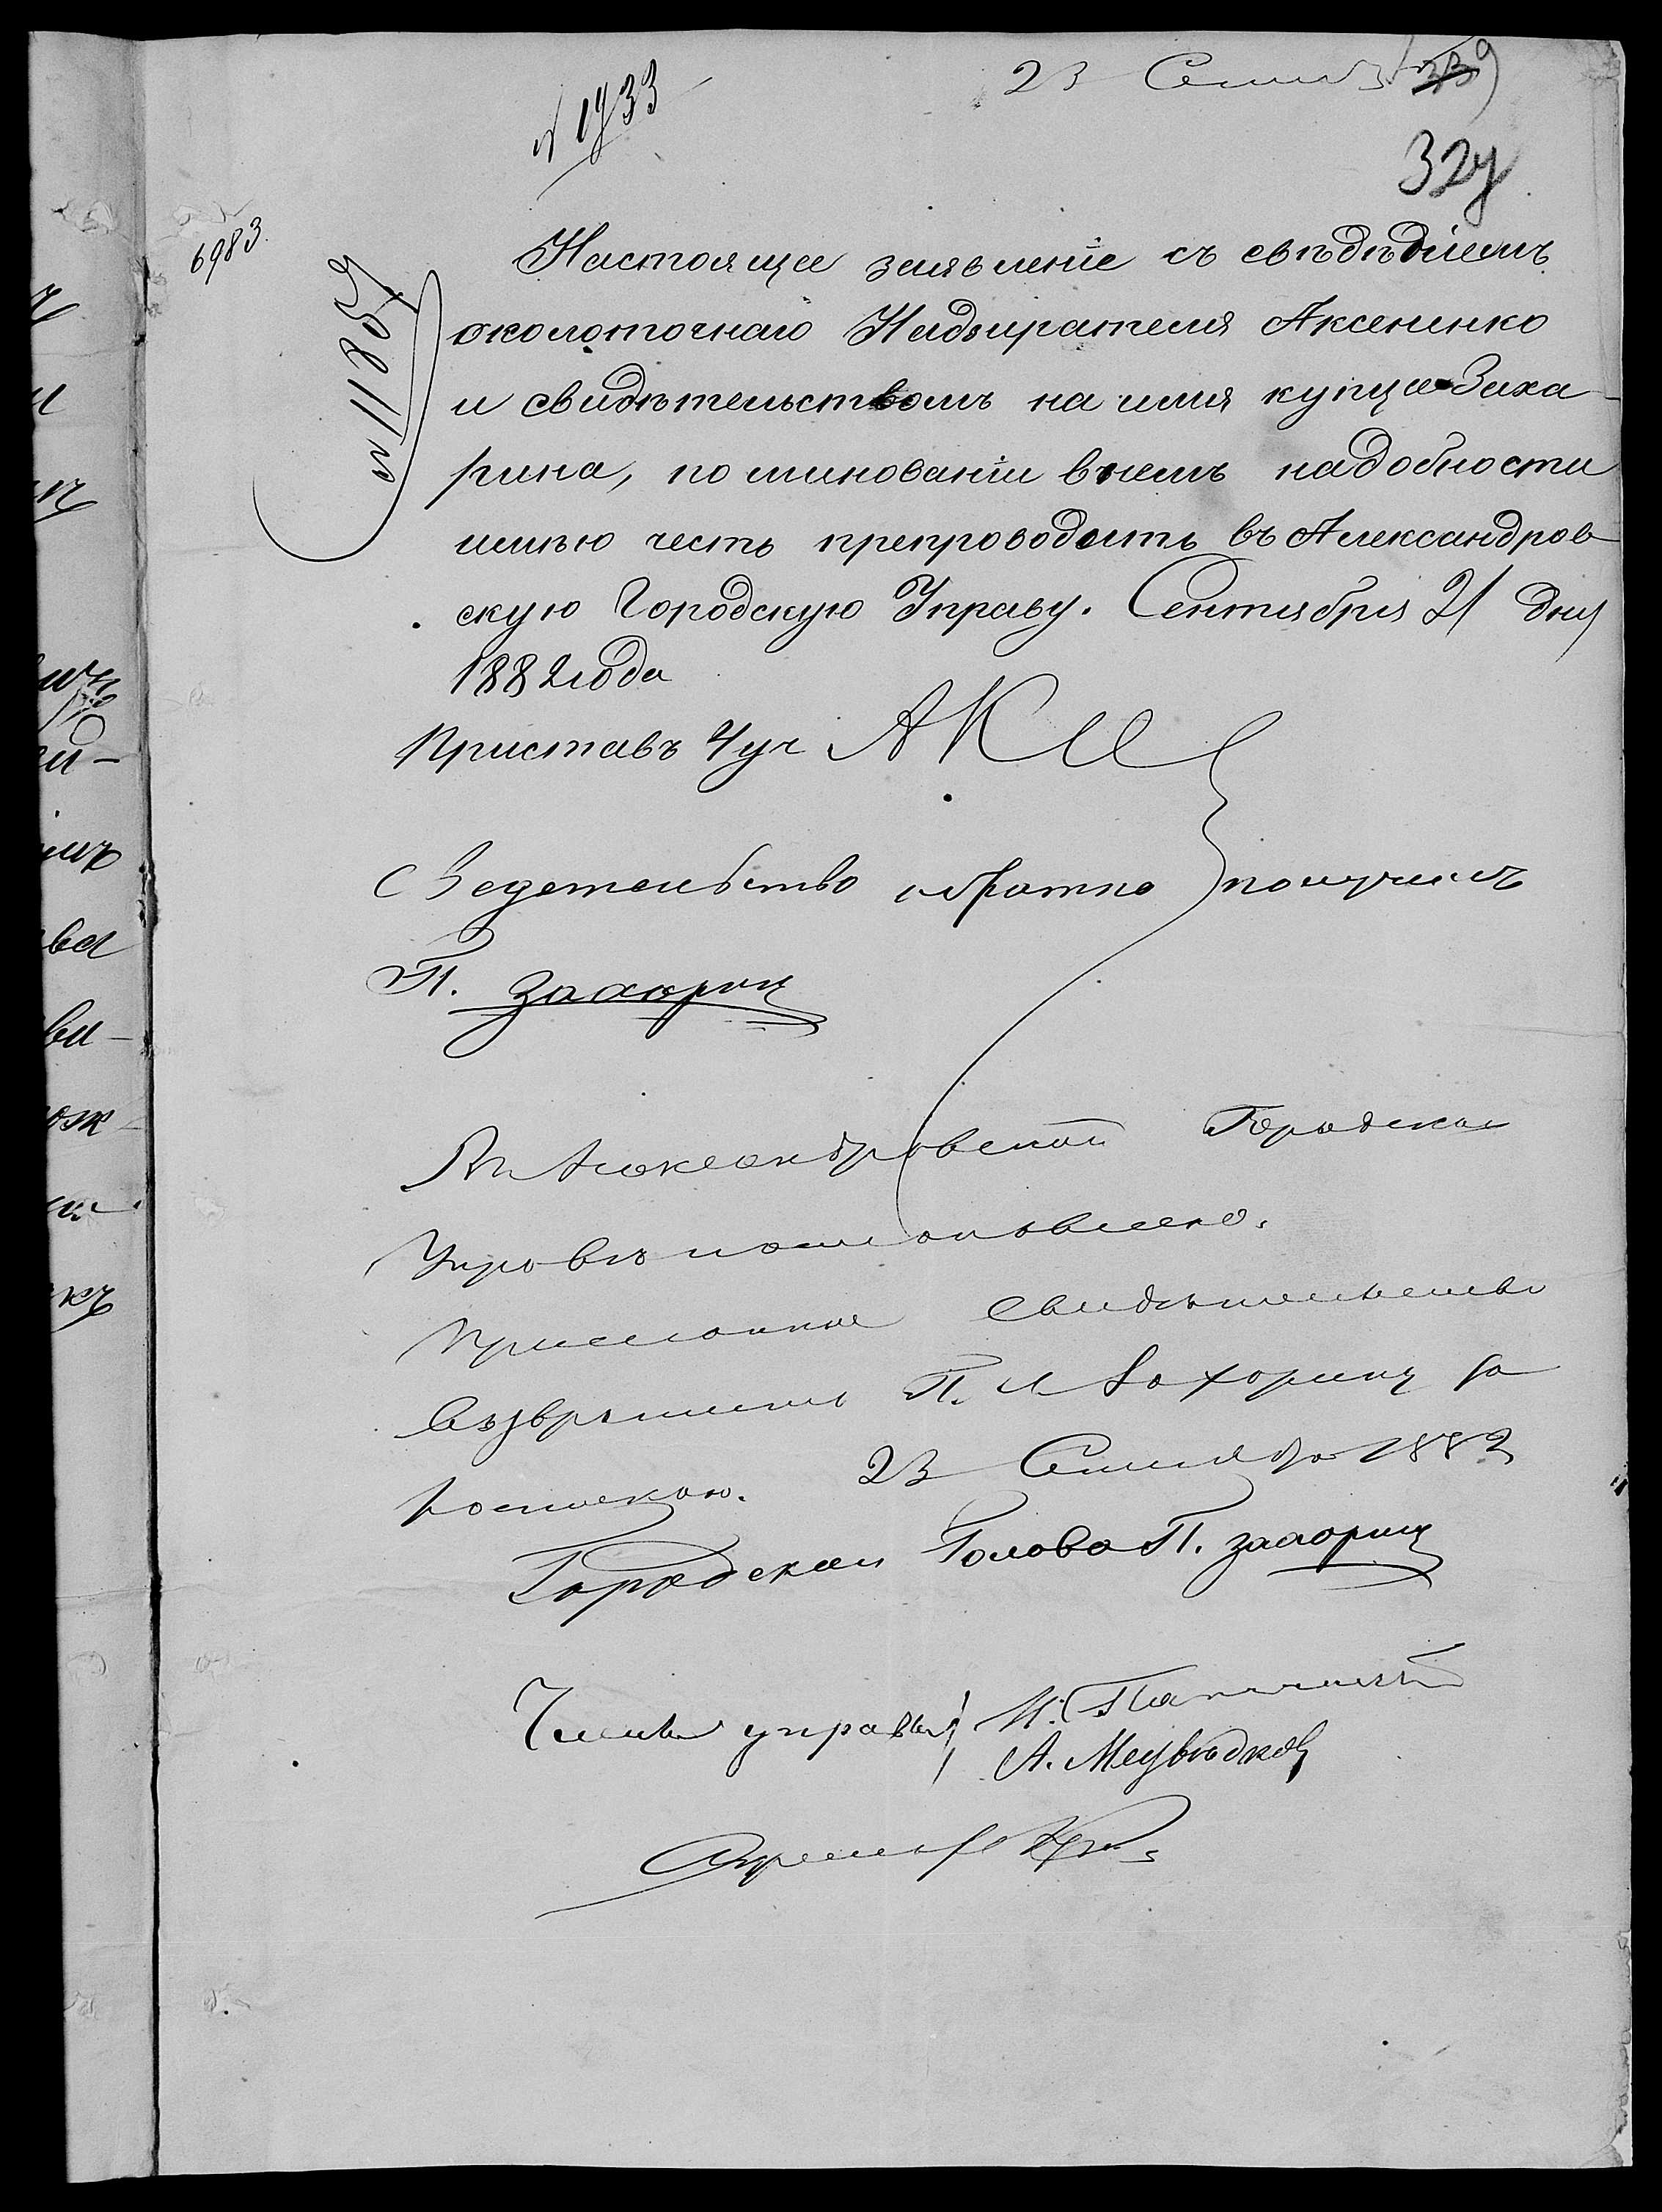 23 Сентяб
339
№ 1933
327
6983
Настоящее заявленіе съ свѣдѣніемъ
околоточнаго Надзирателя Аксененко
и свидѣтельствомъ на имя купца Заха-
рина, по минованіи въ немъ надобности
имѣю честь препроводить въ Александров-
скую Городскую Управу. Сентября 21 дня
1882 года
Приставъ 4 уч
Сведетельство обратно получилъ
П. Захоринъ
Въ Александровской Городской
Управѣ постановлено:
Присланное свидѣтельство
возвратить П. Л. Захорину за
роспискою. 23 Сентября 1882
Городской Голова П. Захоринъ
Члены управы
А. Медвѣдковъ